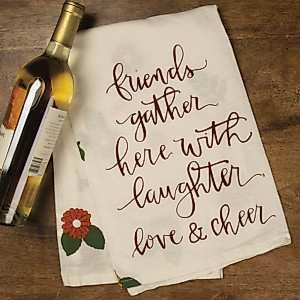 friends
gather
here with
laughter,
love & cheer